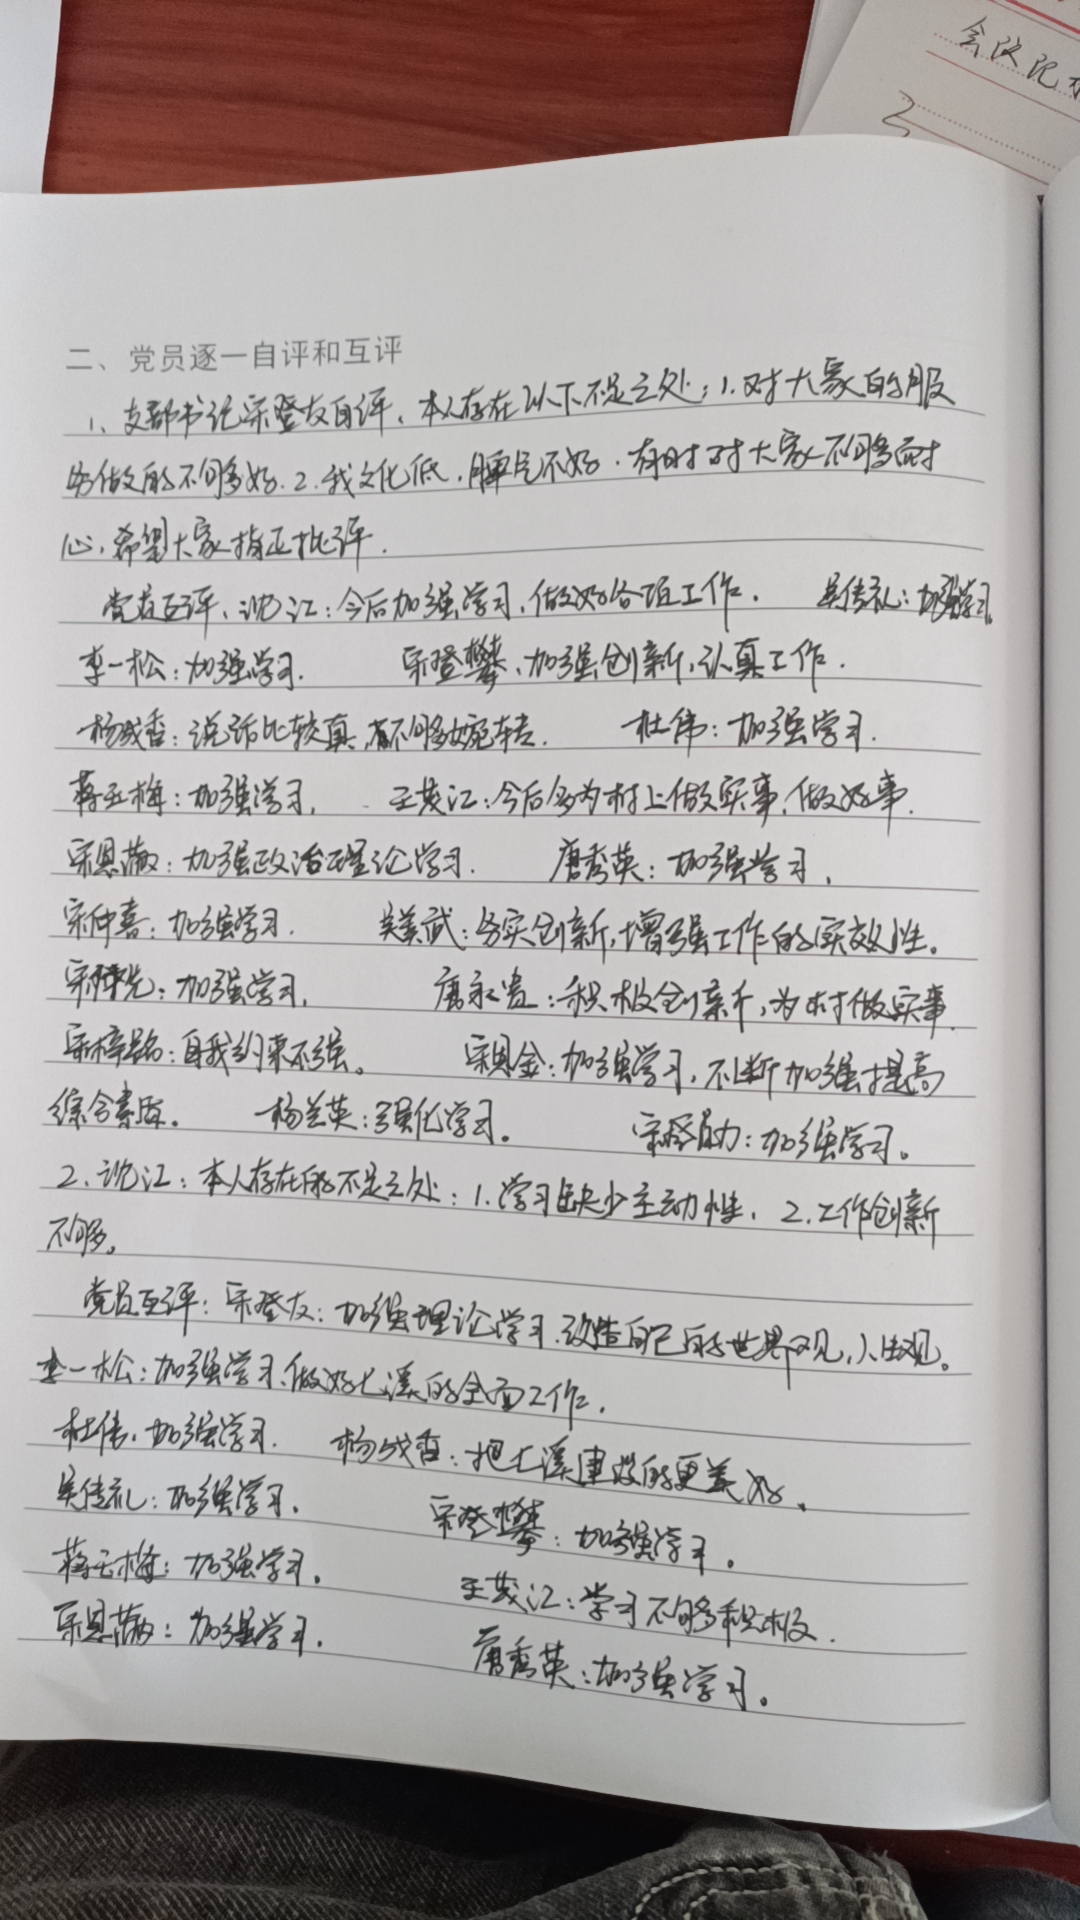 会议记
二、党员逐一自评和互评
1、支部书记宋登友自评、本人存在以下不足之处：1.对大家的服
务做的不够好.2.我文化低，脾气不好.有时对大家不够耐
心，希望大家指正批评.
党员互评、沈江：今后加强学习，做好各项工作. 吴传礼：加强学习.
李一松：加强学习. 宋登攀、加强创新，认真工作.
杨成香：说话比较真，不够婉转. 杜伟：加强学习.
蒋玉梅：加强学习. 王茂江：今后多为村上做实事、做好事.
宋恩薇：加强政治理论学习. 唐秀英：加强学习.
宋仲喜：加强学习. 吴美武：务实创新，增强工作的实效性。
宋先：加强学习. 唐永贵：积极创新，为村做实事.
宋梓：自我约束不强。 宋恩金：加强学习，不断加强提高
综合素质。 杨兰英：强化学习。 宋登助：加强学习。
2.沈江：本人存在的不足之处：1.学习缺少主动性. 2.工作创新
不够。
党员互评：宋登友：加强理论学习.改造自己的世界观，人生观。
李一松：加强学习、做好七溪的全面工作.
杜伟：加强学习. 杨成香：把七溪建设的更美好.
吴传礼：加强学习. 宋登攀：加强学习.
蒋玉梅：加强学习. 王茂江：学习不够积极.
宋恩薇：加强学习. 唐秀英：加强学习。